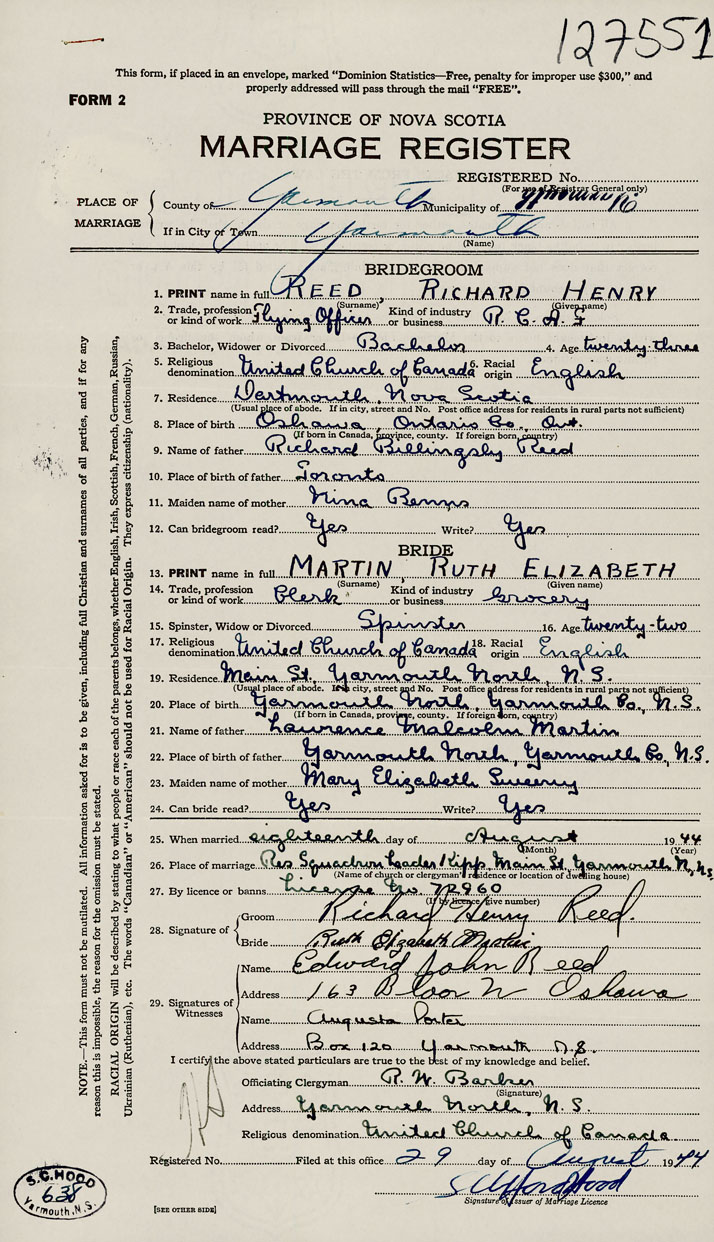 127551
This form, if placed in an envelope, marked "Dominion Statistics—Free, penalty for improper use $300," and
properly addressed will pass through the mail "FREE".
FORM 2
PROVINCE OF NOVA SCOTIA
MARRIAGE REGISTER
REGISTERED No.
(For use of Registrar General only)
PLACE OF MARRIAGE
County of Yarmouth Municipality of
If in City or Town Yarmouth
(Name)
BRIDEGROOM
1. PRINT name in full REED, RICHARD HENRY
(Surname) (Given name)
2. Trade, profession or kind of work Flying Officer Kind of industry or business R. C. A. F
3. Bachelor, Widower or Divorced Bachelor 4. Age twenty-three
5. Religious denomination United Church of Canada 6. Racial origin English
7. Residence Dartmouth, Nova Scotia
(Usual place of abode. If in city, street and No. Post office address for residents in rural parts not sufficient)
8. Place of birth Oshawa, Ontario Co., Ont.
(If born in Canada, province, county. If foreign born, country)
9. Name of father Richard Billingsby Reed
10. Place of birth of father Toronto
11. Maiden name of mother Nina Benns
12. Can bridegroom read? Yes Write? Yes
BRIDE
13. PRINT name in full MARTIN, RUTH ELIZABETH
(Surname) (Given name)
14. Trade, profession or kind of work Clerk Kind of industry or business Grocery
15. Spinster, Widow or Divorced Spinster 16. Age twenty-two
17. Religious denomination United Church of Canada 18. Racial origin English
19. Residence Main St. Yarmouth North, N. S.
(Usual place of abode. If in city, street and No. Post office address for residents in rural parts not sufficient)
20. Place of birth Yarmouth North, Yarmouth Co., N. S.
(If born in Canada, province, county. If foreign born, country)
21. Name of father Lawrence Malcolm Martin
22. Place of birth of father Yarmouth North, Yarmouth Co, N.S.
23. Maiden name of mother Mary Elizabeth Sweeny
24. Can bride read? Yes Write? Yes
25. When married eighteenth day of August 1944
(Month) (Year)
26. Place of marriage Res Squadron Leader Kipp, Main St, Yarmouth N, N.S.
(Name of church or clergyman residence or location of dwelling house)
27. By licence or banns License No. 72960
(If by licence give number)
28. Signature of
Groom Richard Henry Reed.
Bride Ruth Elizabeth Martin
29. Signatures of Witnesses
Name Edward John Reed
Address 163 Bloor W Oshawa
Name Augusta Porter
Address Box 120 Yarmouth N.S.
I certify the above stated particulars are true to the best of my knowledge and belief.
Officiating Clergyman R. W. Barker
(Signature)
Address Yarmouth North, N. S.
Religious denomination United Church of Canada.
Registered No. Filed at this office 29 day of August 1944
Signature of Issuer of Marriage Licence
[SEE OTHER SIDE]
S.C. HOOD
638
Yarmouth, N.S.
NOTE.—This form must not be mutilated. All information asked for is to be given, including full Christian and surnames of all parties, and if for any
reason this is impossible, the reason for the omission must be stated.
RACIAL ORIGIN will be described by stating to what people or race each of the parents belongs, whether English, Irish, Scottish, French, German, Russian,
Ukrainian (Ruthenian), etc. The words "Canadian" or "American" should not be used for Racial Origin. They express citizenship (nationality).